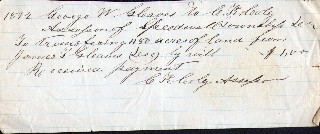 1872 George W. Gleaves To C. H. Seely
Assessor of Speedwell Township Dr
To transferring 1180 acres of land from
James T Gleaves Decd by will - $1.00
Received payment
C H Seely Assessor